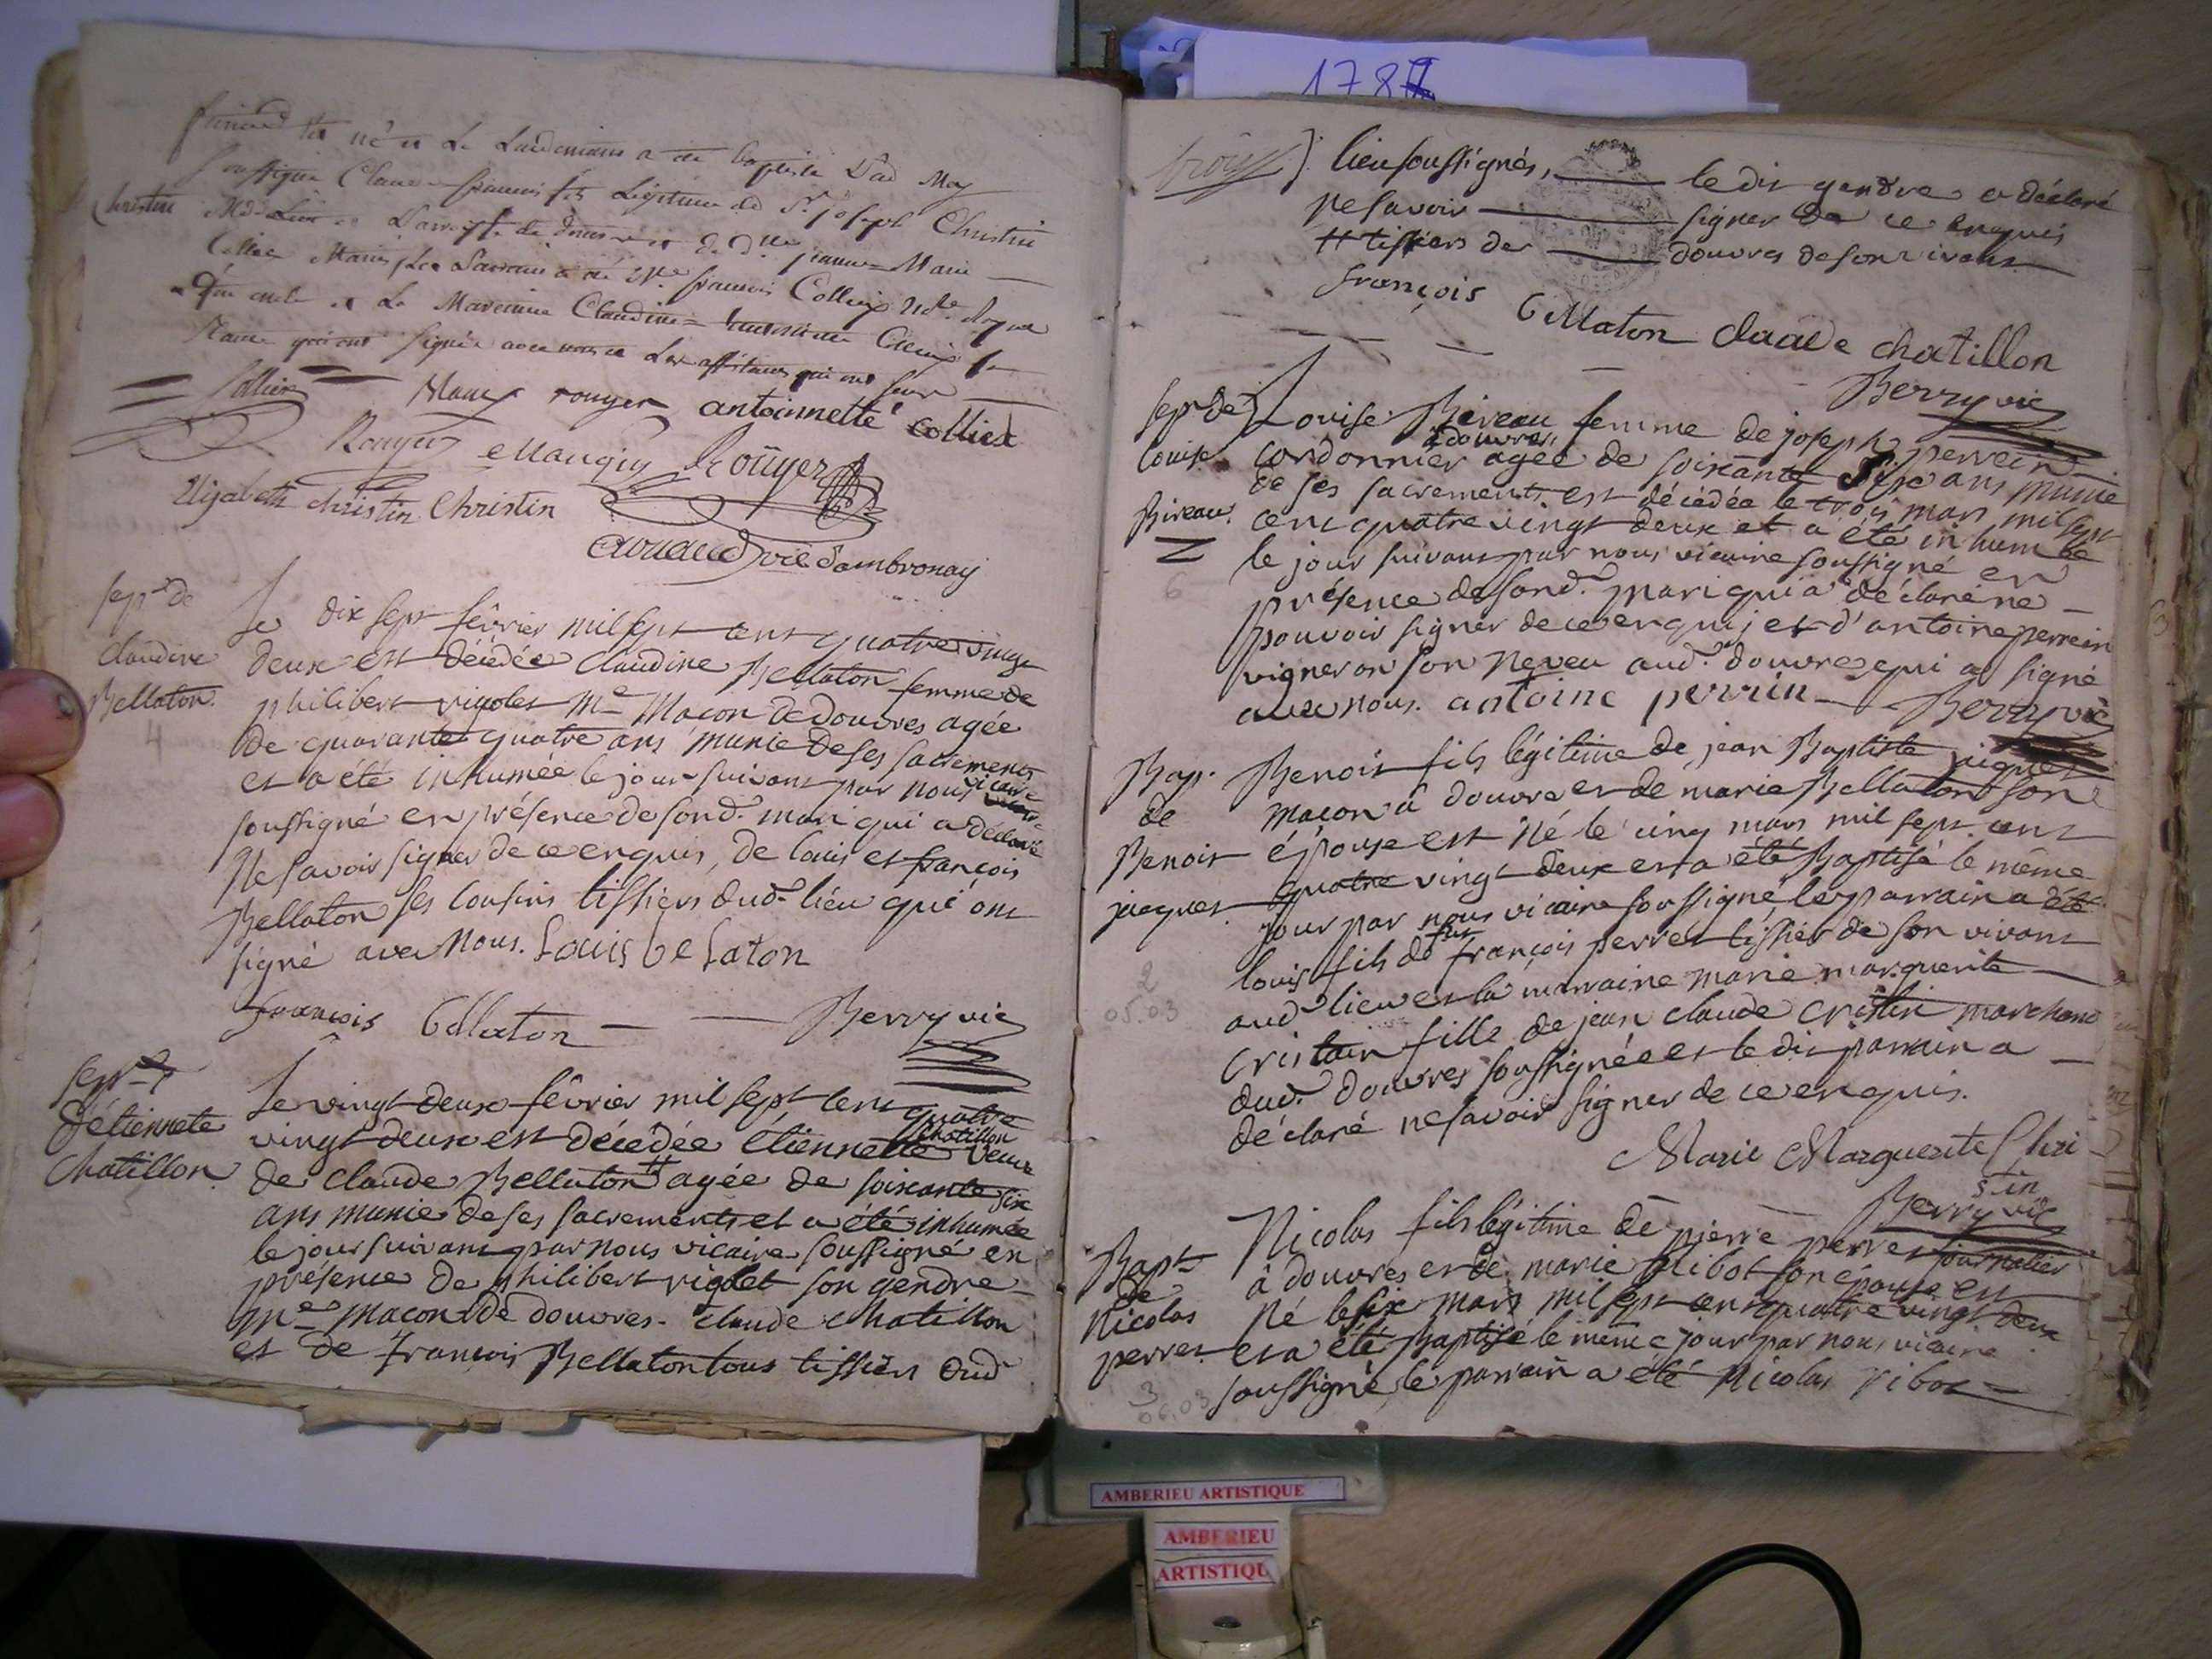 né et le lendemain a été baptisé par moy
soussigné Claude françois fils légitime de Sr joseph Christin
Christin
de douvres et de dlle jeanne Marie
Collier Mariés Le parrain a été Mre françois Collier
et La Mareinne Claudine
qui ont signé avec nous et Les assistans qui ont sceu
Collier Maug rouger antoinnette Collier
Rouyer Maugis Roüyer
Elizabeth christin Christin
vic d'ambronay
sepre de
claudine
Bellaton
4
Le dix sept février mil sept cent quatre vingt
deux est décédée claudine Bellaton femme de
philibert vigolet Me Maçon de douvres agée
de quarante quatre ans munie de ses sacrements
et a été inhumée le jour suivant par nous vicaire
soussigné en présence de sond. mari qui a déclaré
Ne savoir signer de ce enquis, de louis et françois
Bellaton ses cousins tissiers dud. lieu qui ont
signé avec Nous. Louis belaton
françois bellaton — — Berry vic
sepre
d'étiennete
chatillon
5
Le vingt deux février mil sept cent quatre
vingt deux est décédée étiennette chatillon veuve
de claude Bellaton # agée de soixante six
ans munie de ses sacrements et a été inhumée
le jour suivant par nous vicaire soussigné en
présence de philibert vigolet son gendre
Me Macon de douvres. claude chatillon
et de françois Bellaton tous tissiers dud
1787
trois
lieu soussignés, — le dit gendre a déclaré
ne savoir — signer de ce enquis
# tissiers de — douvres de son vivant
françois bellaton claude chatillon
Berry vic
sepre de
louise
Biveau
6
Louise Biveau femme de joseph perrein
cordonnier à douvres agée de soixante ans munie
de ses sacrements est décédée le trois mars mil sept
cent quatre vingt deux et a été inhumée
le jour suivant par nous vicaire soussigné en
présence de sond. mari qui a déclaré ne —
pouvoir signer de ce enquis, et d'antoine perrein
vigneron son neveu aud. douvres qui a signé
avec nous. antoine perrin — Berry vic
Bap.
de
Benoit
jacques
2
05.03
Benoit fils légitime de jean Baptiste
maçon à douvre et de marie Bellaton son
épouse est Né le cinq mars mil sept cent
quatre vingt deux et a été Baptisé le même
jour par nous vicaire soussigné, le parrain a été
louis fils de feu françois perret tissier de son vivant
aud. lieu et la marraine marie marguerite —
cristain fille de jean claude cristin marchand
dud. douvres soussignée et le dit parrain a —
déclaré ne savoir signer de ce enquis.
Marie Marguerite Chri
stin
Berry vic
Bapt
de
Nicolas
perret
3
06.03
Nicolas fils légitime de pierre perret journalier
à douvres et de marie ribot son épouse est
Né le six mars mil sept cent quatre vingt deux
et a été Baptisé le même jour par nous vicaire
soussigné, le parrain a été Nicolas ribot —
AMBERIEU ARTISTIQUE
AMBERIEU
ARTISTIQU